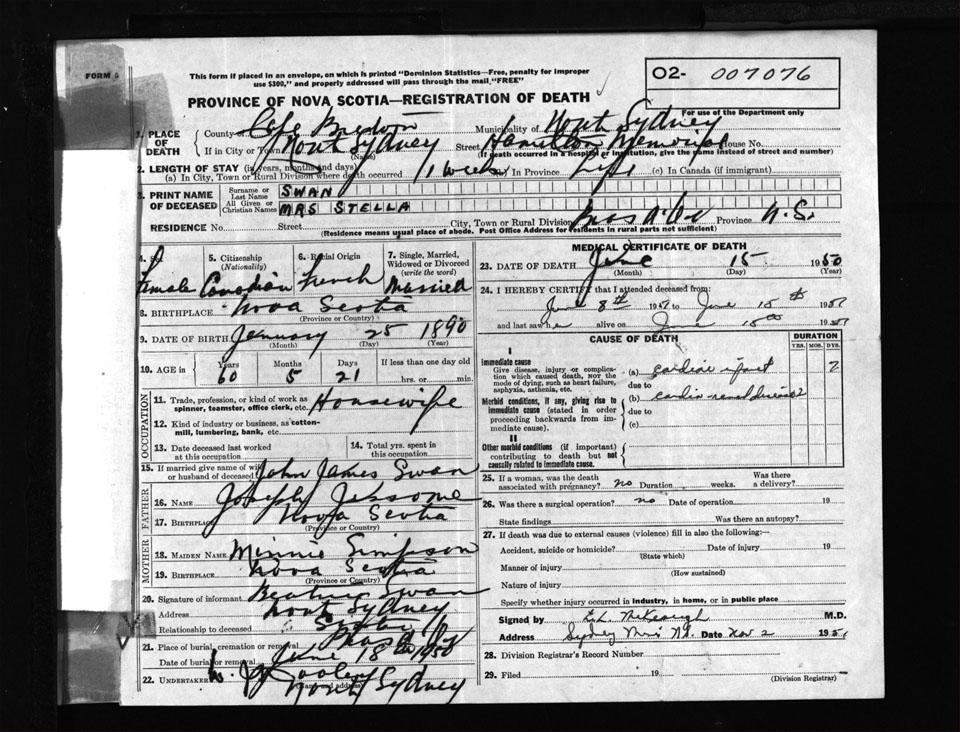 FORM 5
This form if placed in an envelope, on which is printed "Dominion Statistics—Free, penalty for improper
use $300," and properly addressed will pass through the mail "FREE"
O2- 007076
PROVINCE OF NOVA SCOTIA—REGISTRATION OF DEATH
For use of the Department only
1. PLACE OF DEATH
County of Cape Breton Municipality of North Sydney
If in City or Town North Sydney Street Hamilton Memorial House No.
(Name) (If death occurred in a hospital or institution, give the name instead of street and number)
2. LENGTH OF STAY (in years, months and days)
(a) In City, Town or Rural Division where death occurred 1 week (b) In Province Life (c) In Canada (if immigrant)
3. PRINT NAME OF DECEASED
Surname or Last Name SWAN
All Given or Christian Names MRS STELLA
RESIDENCE No. Street City, Town or Rural Division Bras d'Or Province N.S.
(Residence means usual place of abode. Post Office Address for residents in rural parts not sufficient)
4. Female
5. Citizenship (Nationality) Canadian
6. Racial Origin French
7. Single, Married, Widowed or Divorced (write the word) Married
8. BIRTHPLACE Nova Scotia
(Province or Country)
9. DATE OF BIRTH January 25 1890
(Month) (Day) (Year)
10. AGE in Years 60 Months 5 Days 21 If less than one day old
hrs. or min.
OCCUPATION
11. Trade, profession, or kind of work as spinner, teamster, office clerk, etc. Housewife
12. Kind of industry or business, as cotton-mill, lumbering, bank, etc.
13. Date deceased last worked at this occupation
14. Total yrs. spent in this occupation
15. If married give name of wife or husband of deceased John James Swan
FATHER
16. NAME Joseph Jessome
17. BIRTHPLACE Nova Scotia
(Province or Country)
MOTHER
18. MAIDEN NAME Minnie Simpson
19. BIRTHPLACE Nova Scotia
(Province or Country)
20. Signature of informant Swan
Address North Sydney
Relationship to deceased
21. Place of burial, cremation or removal Bras d'Or
Date of burial or removal June 18 1950
22. UNDERTAKER
(Name and address) North Sydney
MEDICAL CERTIFICATE OF DEATH
23. DATE OF DEATH June 15 1950
(Month) (Day) (Year)
24. I HEREBY CERTIFY that I attended deceased from:
June 8th 195 to June 15th 195
and last saw h alive on June 15th 195
CAUSE OF DEATH
DURATION
YRS. MOS. DYS.
I
Immediate cause
Give disease, injury or complication which caused death, NOT the mode of dying, such as heart failure, asphyxia, asthenia, etc.
(a) cardiac 7
due to
Morbid conditions, if any, giving rise to immediate cause (stated in order proceeding backwards from immediate cause).
(b) cardio-renal disease
due to
(c)
II
Other morbid conditions (if important) contributing to death but not causally related to immediate cause.
25. If a woman, was the death associated with pregnancy? no Duration weeks. Was there a delivery?
26. Was there a surgical operation? no Date of operation 19
State findings Was there an autopsy?
27. If death was due to external causes (violence) fill in also the following:—
Accident, suicide or homicide? Date of injury 19
(State which)
Manner of injury
(How sustained)
Nature of injury
Specify whether injury occurred in industry, in home, or in public place
Signed by McKeough M.D.
Address Sydney Mines N.S. Date Nov 2 195
28. Division Registrar's Record Number
29. Filed 19
(Division Registrar)